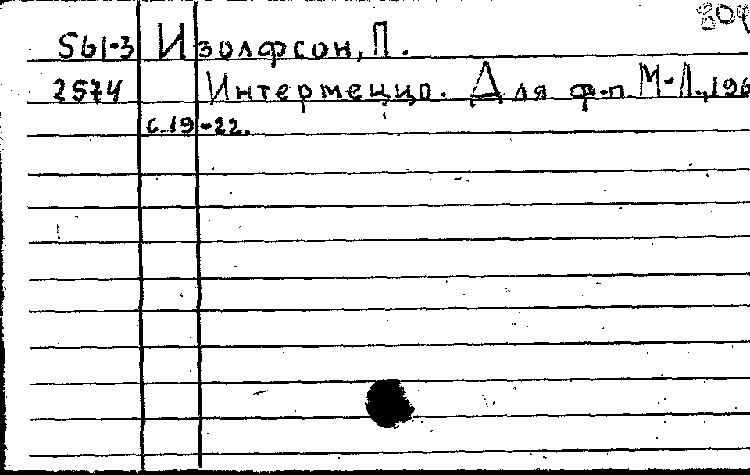 809
S61-3 Изолфсон, П.
2574 Интермеццо. Для ф-п. М-Л., 196
с. 19-22.